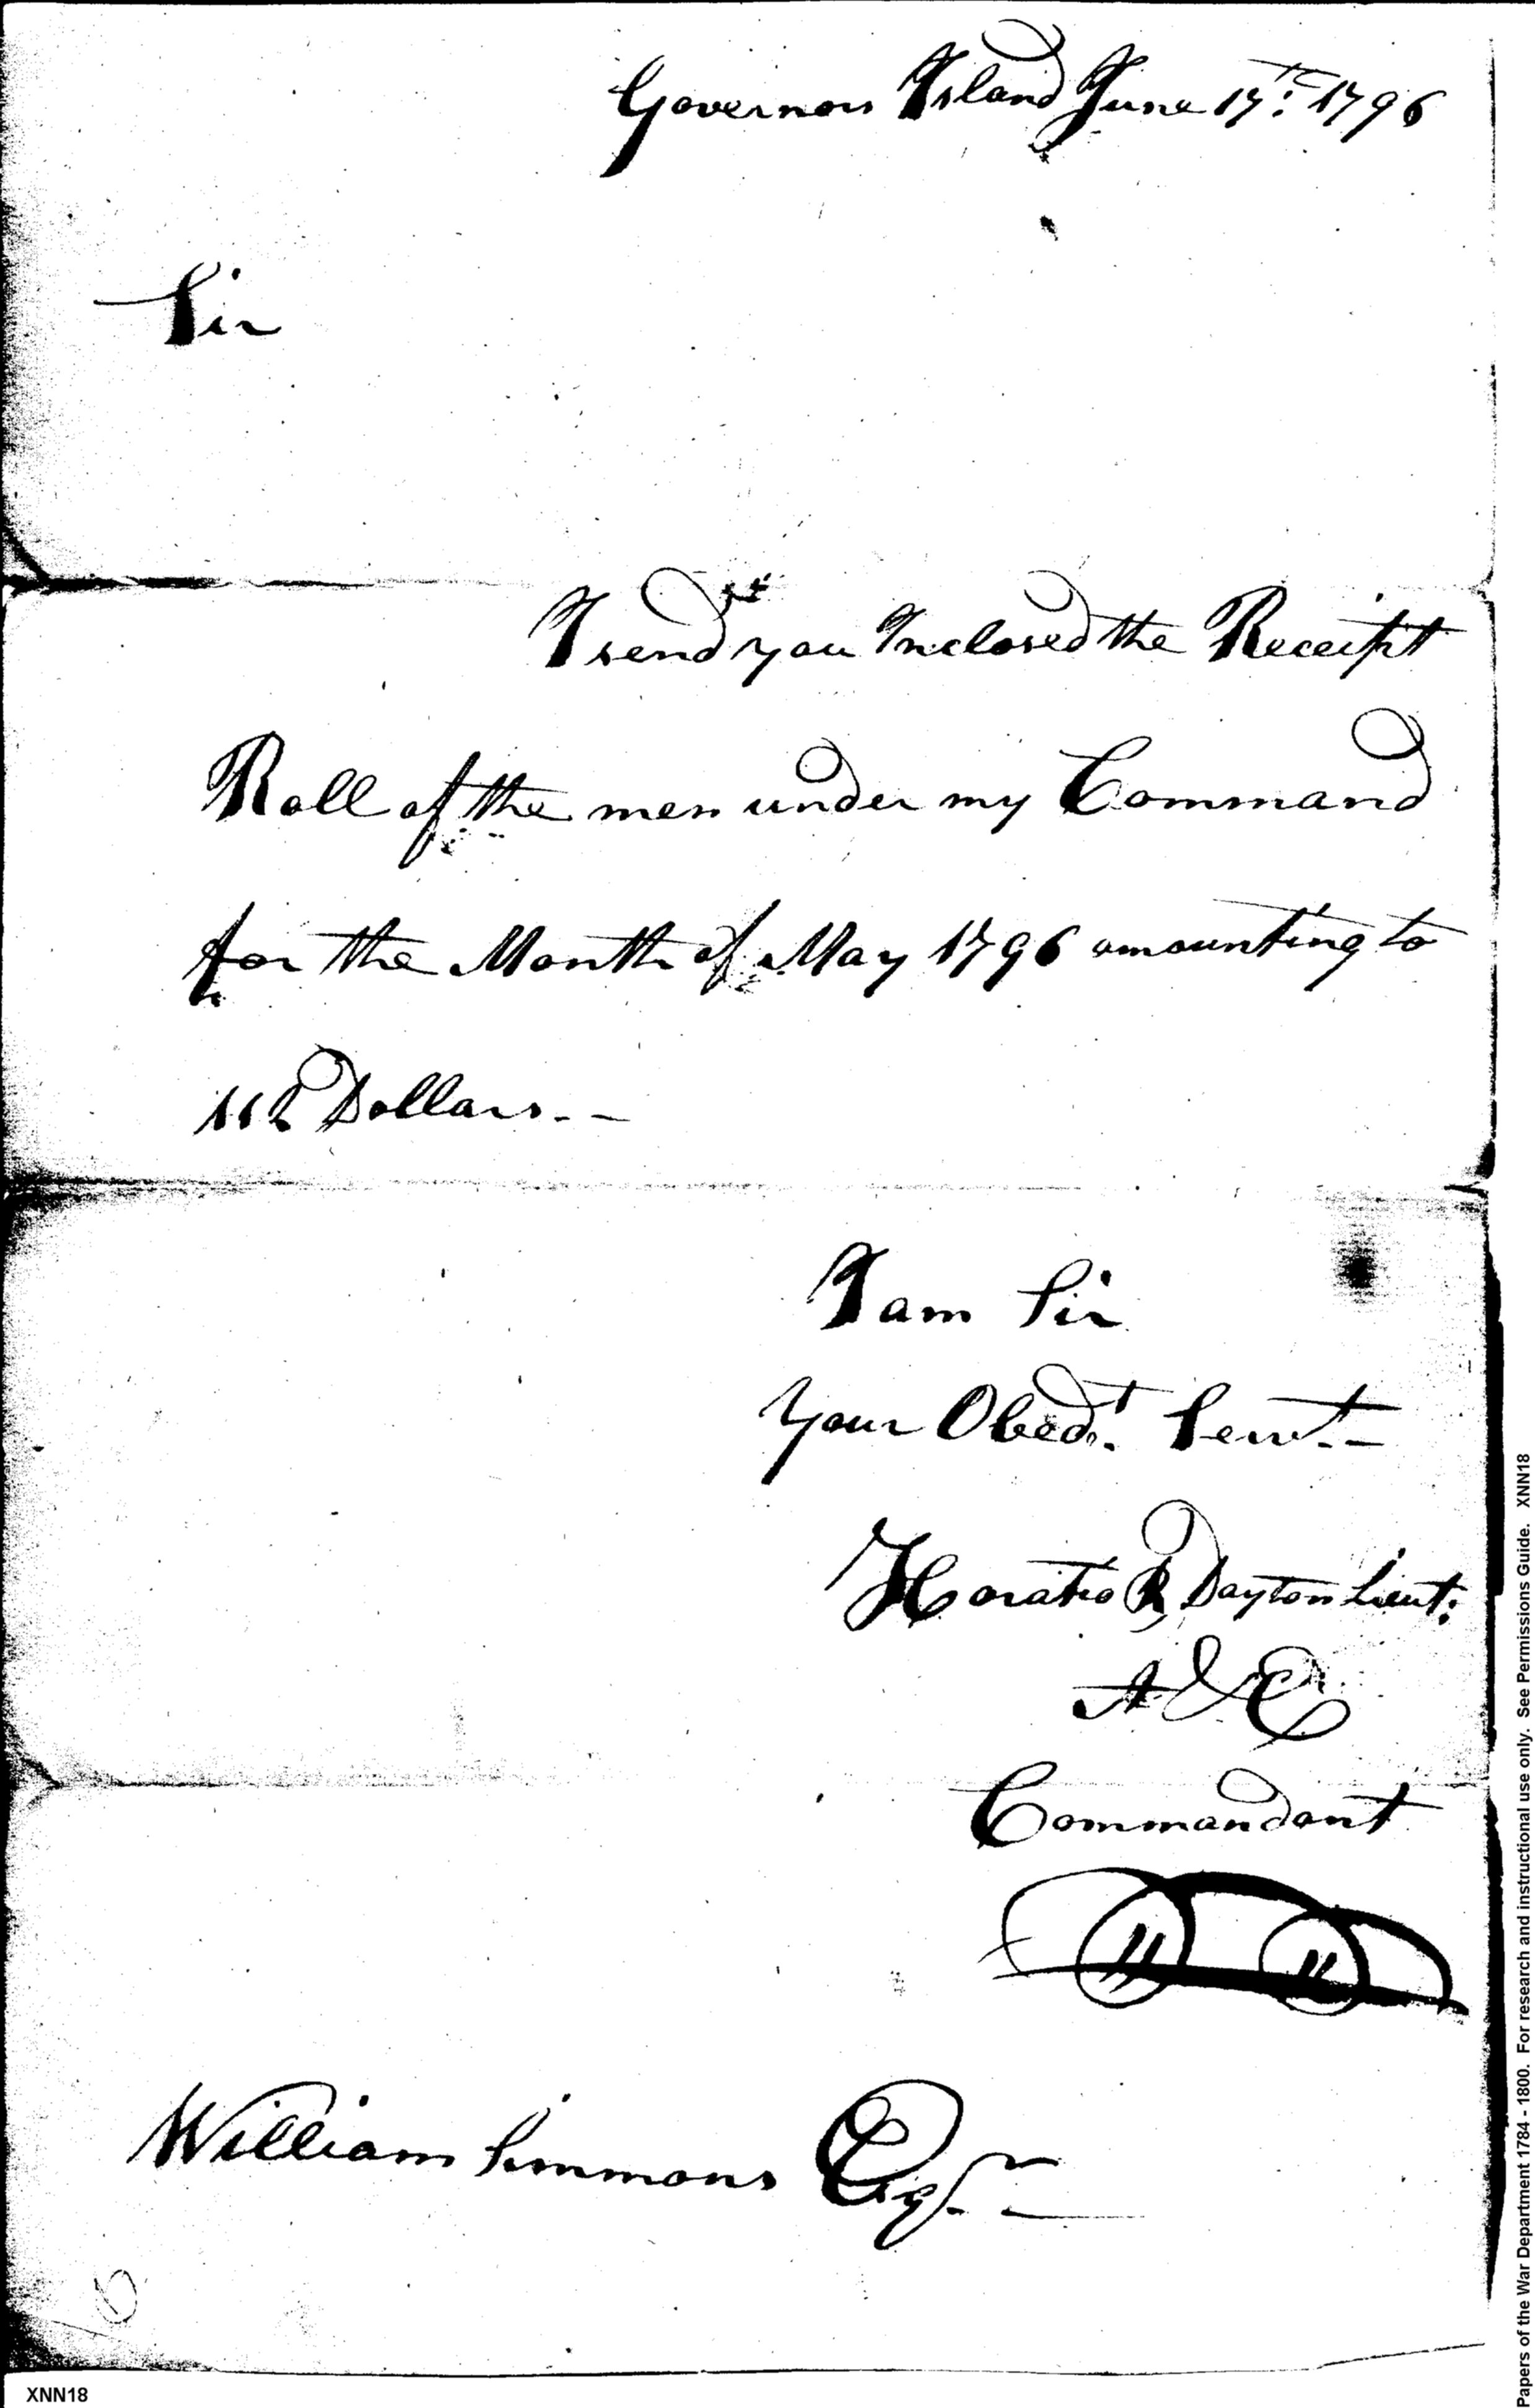 Governors Island June 17th: 1796
Sir
I send you Inclosed the Receipt
Roll of the men under my Command
for the Month of May 1796 amounting to
Dollars. -
I am Sir
Your Obedt. Servt. -
Horatio R Dayton Lieut:
A & E
Commandant
William Simmons Esqr. -
XNN18
Papers of the War Department 1784 - 1800. For research and instructional use only. See Permissions Guide. XNN18